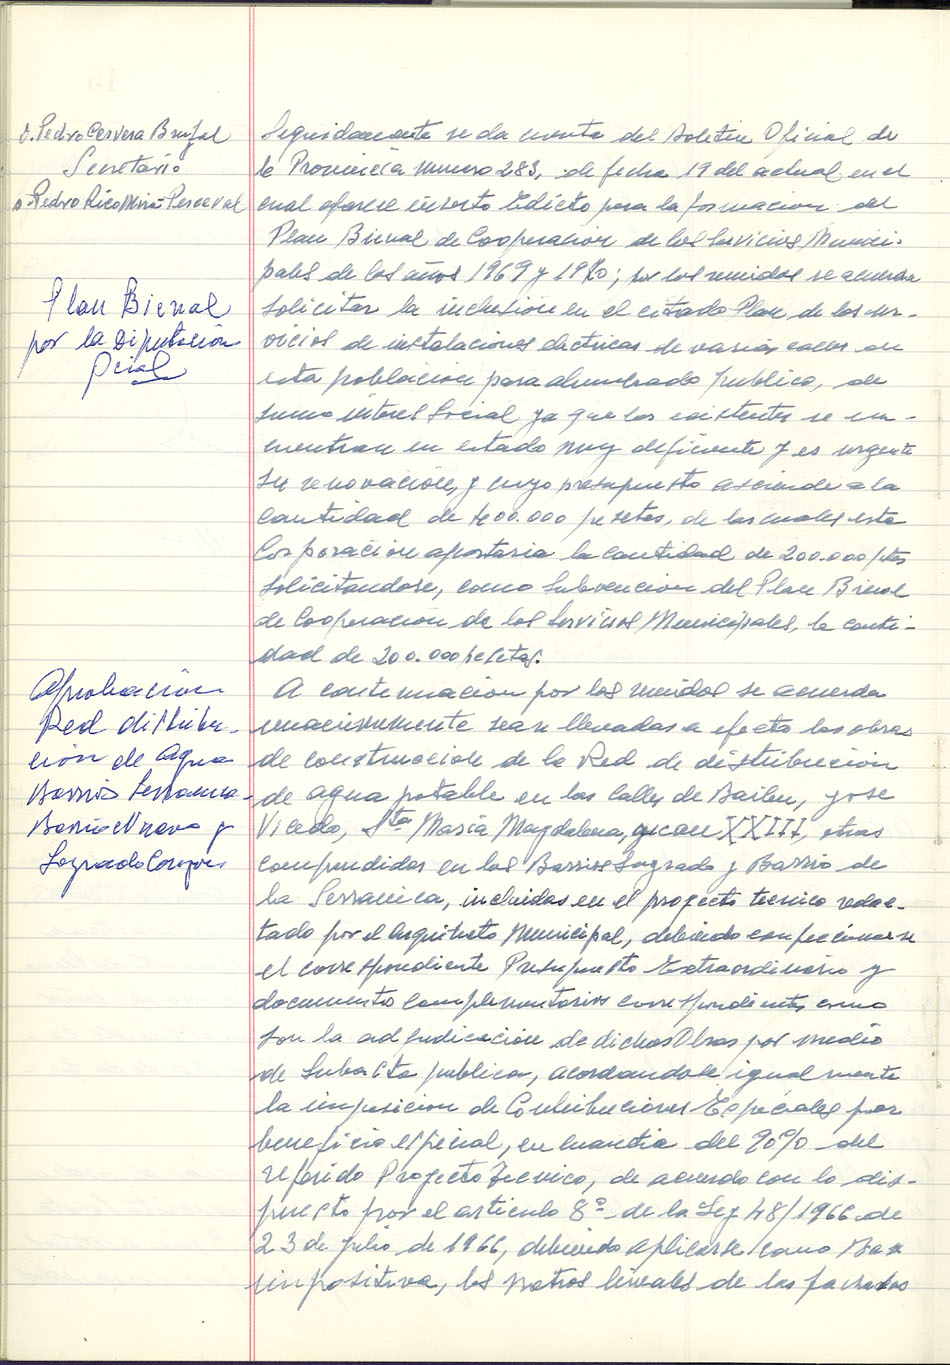 D. Pedro Cervera Brufal
Secretario
D. Pedro Rico Mira-Perceval
Plan Bienal
por la Diputación
Pcial
Aprobación
Red distribu-
ción de Agua
Barrio Serranica
Barrio Nuevo y
Sagrado Corazón
Seguidamente se da cuenta del Boletin Oficial de
la Provincia numero 283, de fecha 19 del actual en el
cual aparece inserto Edicto para la formacion del
Plan Bienal de Cooperacion de los Servicios Munici-
pales de los años 1969 y 1970; por los reunidos se acuerda
solicitar la inclusion en el citado Plan de los ser-
vicios de instalaciones electricas de varias calles en
esta poblacion para alumbrado publico, de
sumo interes Social ya que los existentes se en-
cuentran en estado muy deficiente y es urgente
su renovación, y cuyo presupuesto asciende a la
cantidad de 400.000 pesetas, de las cuales esta
Corporacion aportaria la cantidad de 200.000 ptas
solicitandose, como Subvencion del Plan Bienal
de Cooperacion de los Servicios Municipales, la canti-
dad de 200.000 pesetas.
A continuacion por los reunidos se acuerda
unanimemente sean llevadas a efecto las obras
de construccion de la Red de distribucion
de agua potable en las Calles de Bailen, Jose
Vicedo, Sta Maria Magdalena, Juan XXIII, otras
comprendidas en los Barrios Sagrado y Barrio de
la Serranica, incluidas en el proyecto tecnico redac-
tado por el Arquitecto Municipal, debiendo confeccionarse
el correspondiente Presupuesto Extraordinario y
documentos complementarios correspondientes como
son la adjudicación de dichas Obras por medio
de Subasta publica, acordandose igualmente
la imposicion de Contribuciones Especiales por
beneficio especial, en cuantia del 90% del
referido Proyecto Tecnico, de acuerdo con lo dis-
puesto por el articulo 8º de la Ley 48/1966 de
23 de Julio de 1966, debiendo aplicarse como Base
impositiva, los metros lineales de las fachadas